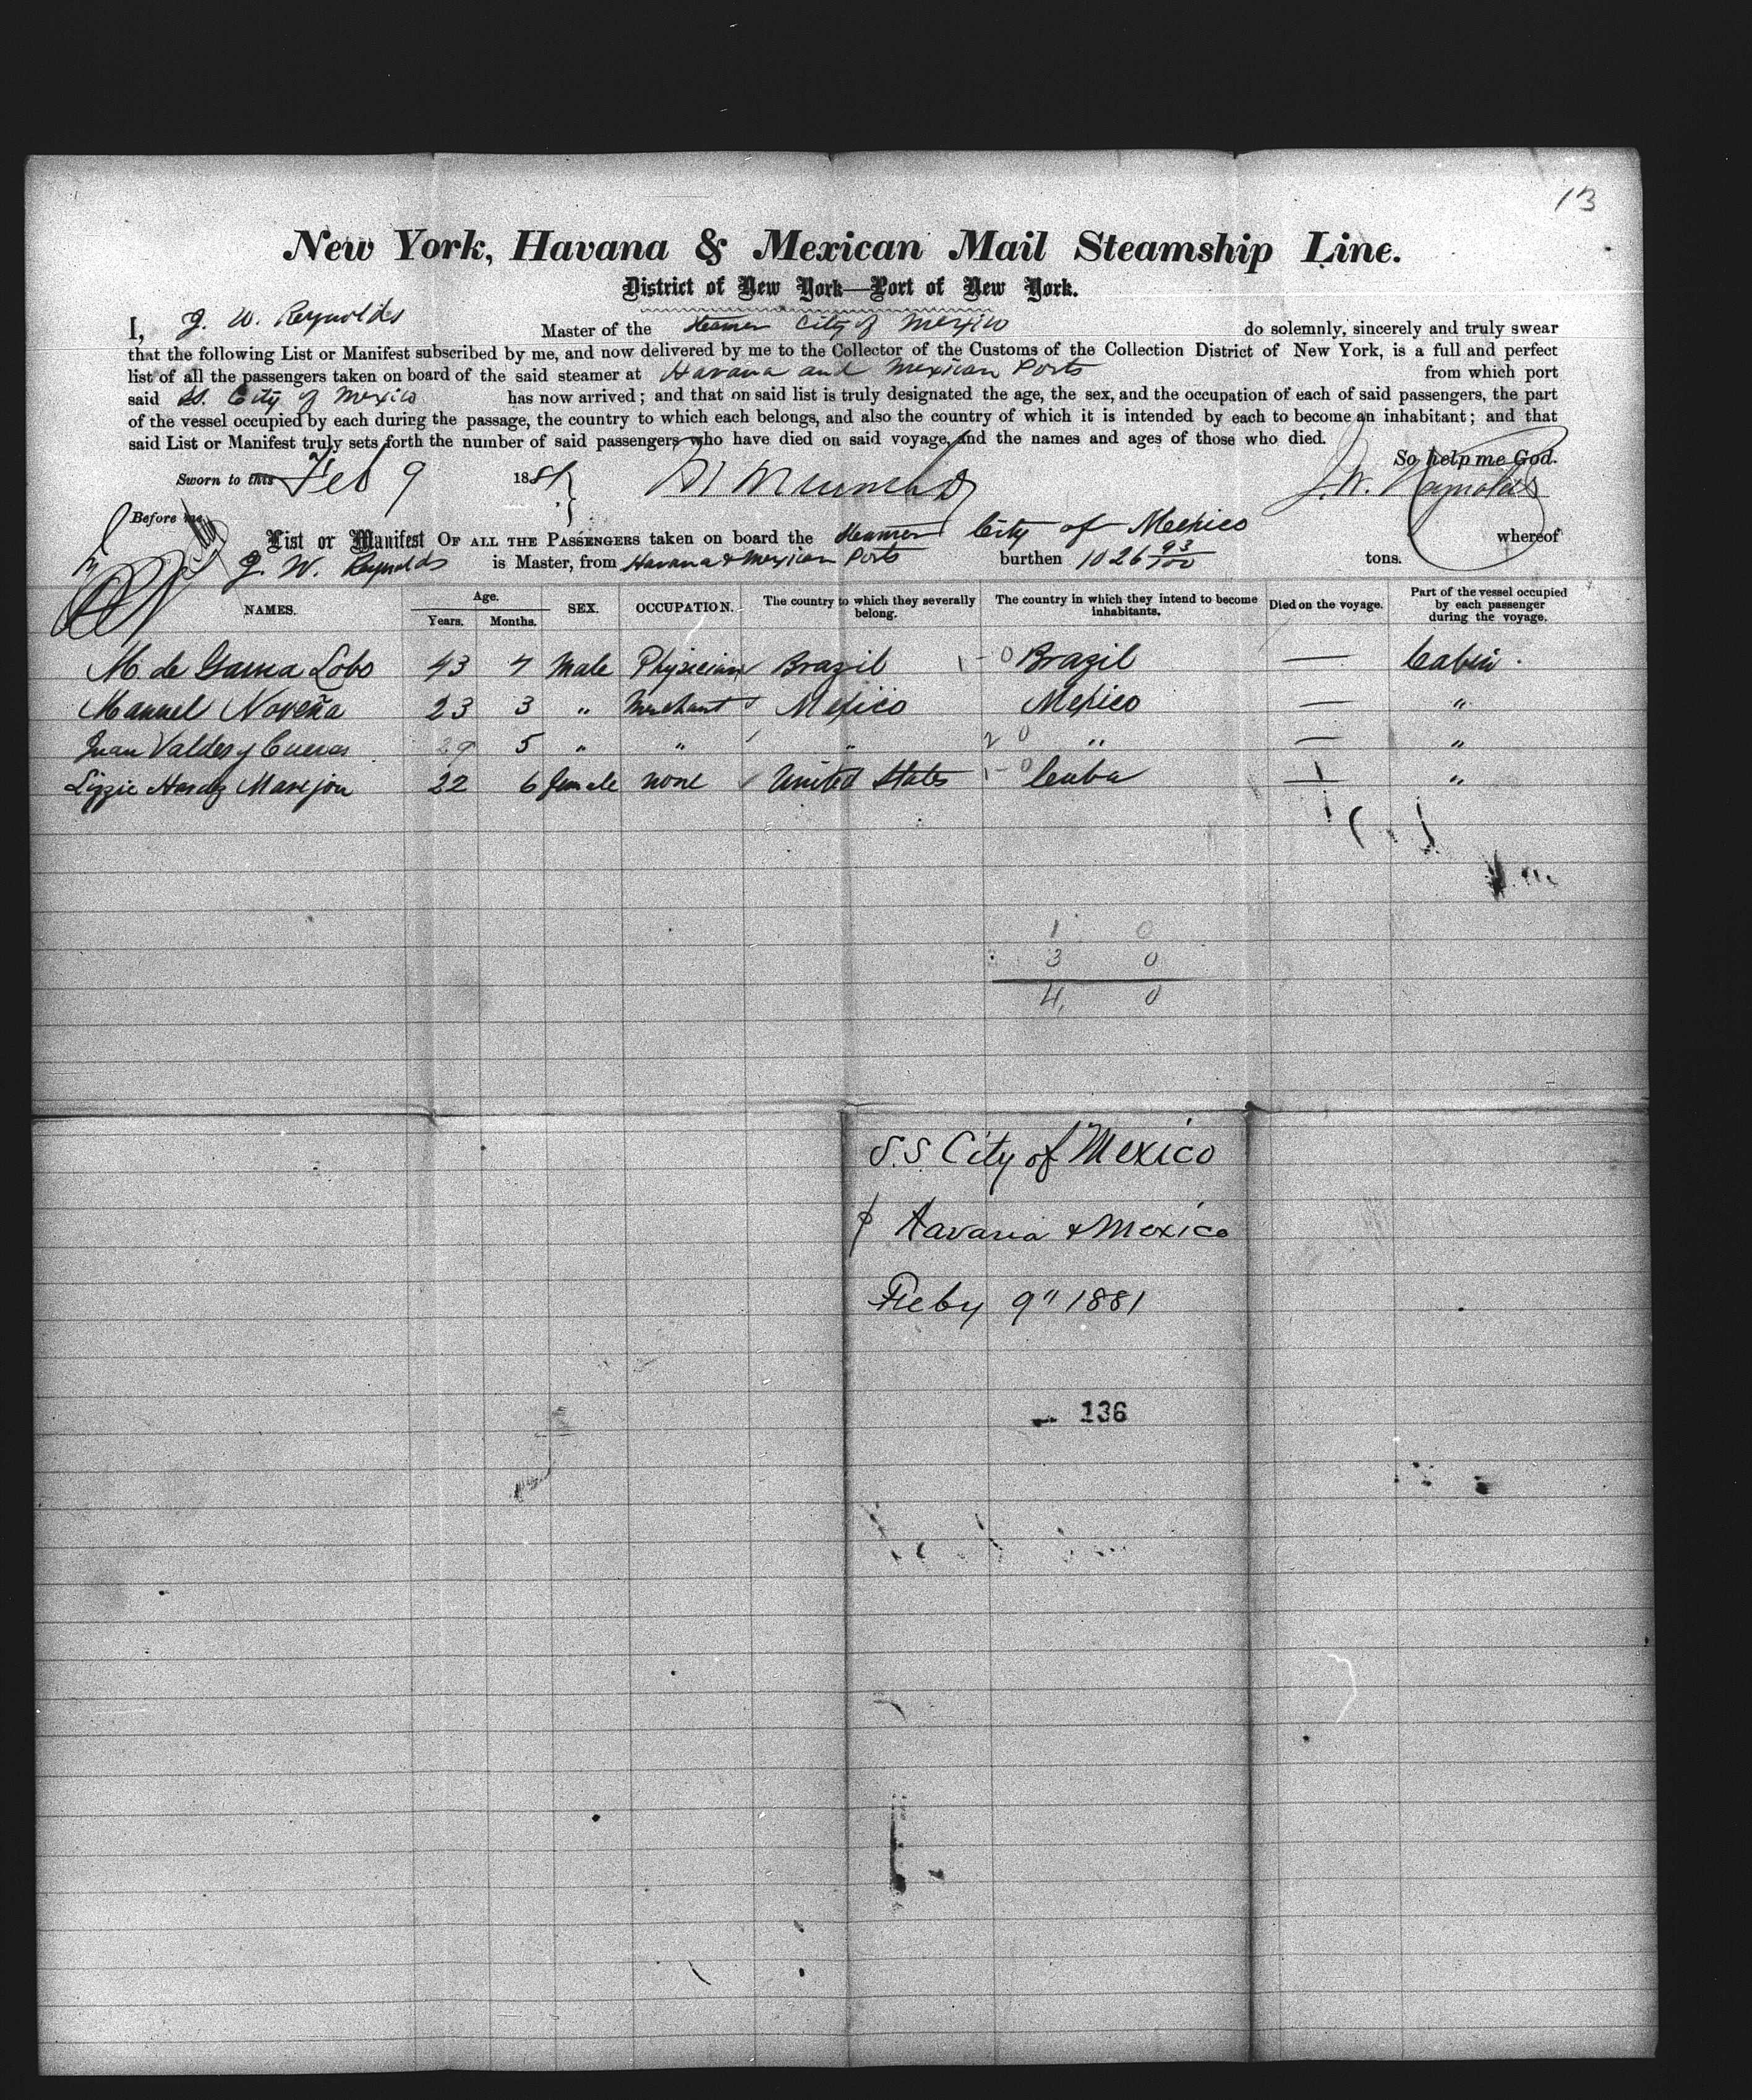 13
New York, Havana & Mexican Mail Steamship Line.
District of New York—Port of New York.
I, J. W. Reynolds Master of the Steamer City of Mexico do solemnly, sincerely and truly swear
that the following List or Manifest subscribed by me, and now delivered by me to the Collector of the Customs of the Collection District of New York, is a full and perfect
list of all the passengers taken on board of the said steamer at Havana and Mexican Ports from which port
said SS. City of Mexico has now arrived; and that on said list is truly designated the age, the sex, and the occupation of each of said passengers, the part
of the vessel occupied by each during the passage, the country to which each belongs, and also the country of which it is intended by each to become an inhabitant; and that
said List or Manifest truly sets forth the number of said passengers who have died on said voyage, and the names and ages of those who died.
So help me God.
Sworn to this Feb 9 1881 J. W. Reynolds
Before me
List or Manifest OF ALL THE PASSENGERS taken on board the Steamer City of Mexico whereof
J. W. Reynolds is Master, from Havana & Mexican Ports burthen 1026 93/100 tons.
NAMES. Age. Years. Months. SEX. OCCUPATION. The country to which they severally belong. The country in which they intend to become inhabitants. Died on the voyage. Part of the vessel occupied by each passenger during the voyage.
M. de Gama Lobo 43 7 Male Physician Brazil 1 - 0 Brazil — Cabin.
Manuel Noreña 23 3 " Merchant Mexico Mexico — "
Juan Valdes y Cuevas 29 5 " " " 2 0 " — "
Lizzie Hardy Marejon 22 6 female none United States 1 - 0 Cuba — "
1 0
3 0
4 0
S.S. City of Mexico
Havana & Mexico
Feby 9" 1881
136